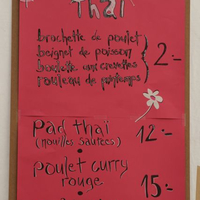 Thaï
brochette de poulet
beignet de poisson
brochette aux crevettes
rouleau de printemps
2.-
Pad thaï
(nouilles sautées)
12.-
poulet curry
rouge
15.-